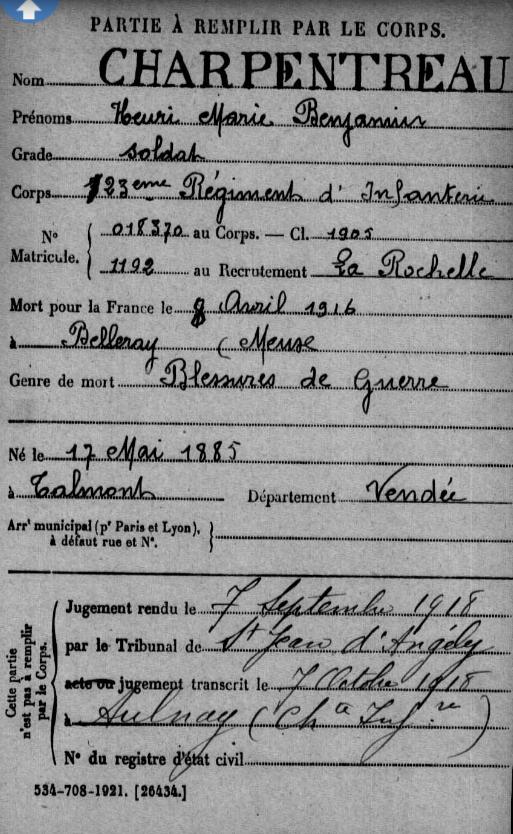 PARTIE À REMPLIR PAR LE CORPS.
Nom CHARPENTREAU
Prénoms Henri Marie Benjamin
Grade soldat
Corps 123eme Régiment d'Infanterie
N° Matricule. 018370 au Corps. — Cl. 1905
1192 au Recrutement La Rochelle
Mort pour la France le 8 Avril 1916
à Belleray (Meuse
Genre de mort Blessures de Guerre
Né le 17 Mai 1885
à Talmont Département Vendée
Arr' municipal (p' Paris et Lyon),
à défaut rue et N°.
Cette partie n'est pas à remplir par le Corps.
Jugement rendu le 7 Septembre 1918
par le Tribunal de St Jean d'Angély
acte ou jugement transcrit le 7 Octobre 1918
à Aulnay (Chte Infre)
N° du registre d'état civil
534-708-1921. [26434.]